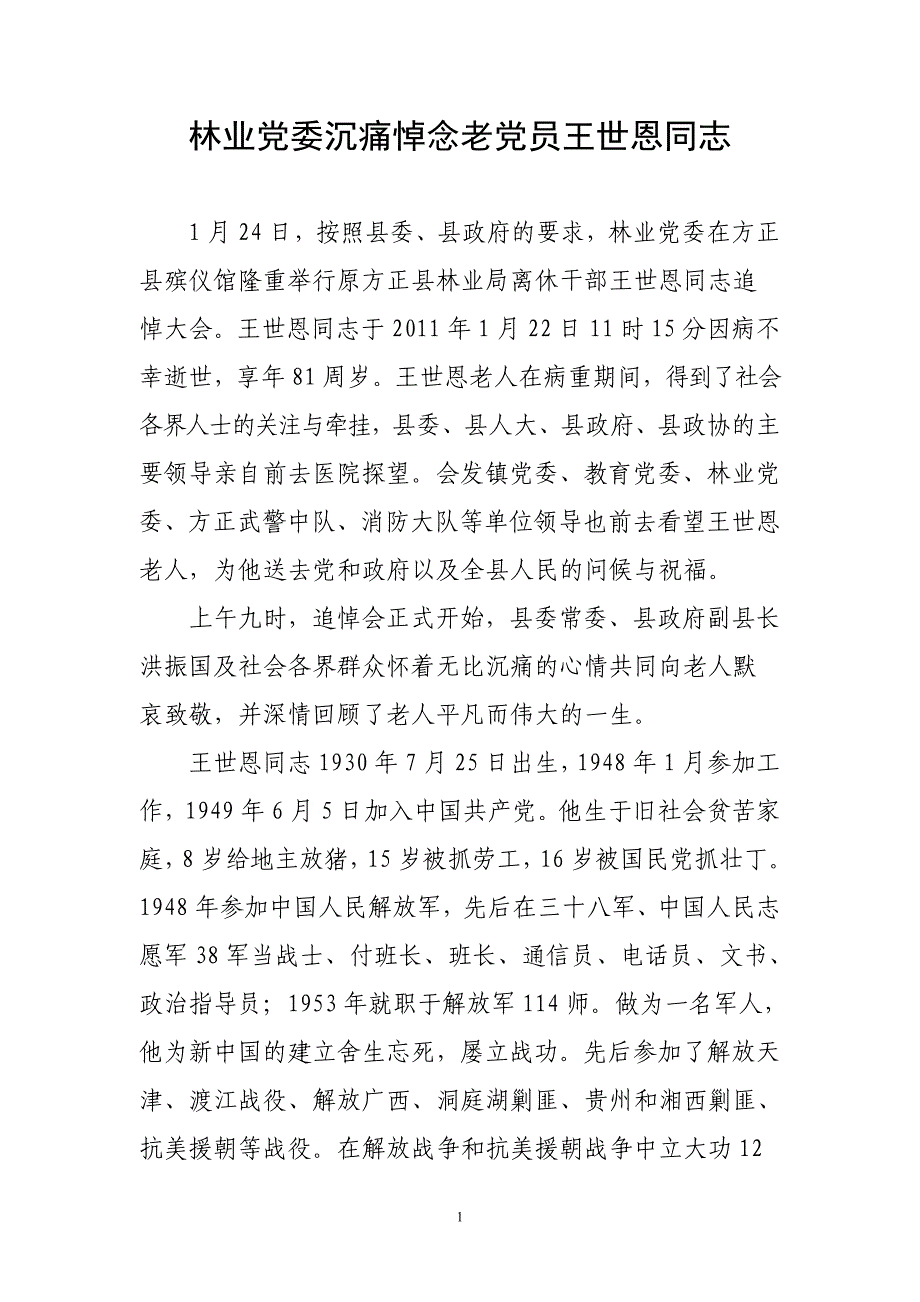 林业党委沉痛悼念老党员王世恩同志
1 月 24 日，按照县委、县政府的要求，林业党委在方正
县殡仪馆隆重举行原方正县林业局离休干部王世恩同志追
悼大会。王世恩同志于 2011 年 1 月 22 日 11 时 15 分因病不
幸逝世，享年 81 周岁。王世恩老人在病重期间，得到了社会
各界人士的关注与牵挂，县委、县人大、县政府、县政协的主
要领导亲自前去医院探望。会发镇党委、教育党委、林业党
委、方正武警中队、消防大队等单位领导也前去看望王世恩
老人，为他送去党和政府以及全县人民的问候与祝福。
上午九时，追悼会正式开始，县委常委、县政府副县长
洪振国及社会各界群众怀着无比沉痛的心情共同向老人默
哀致敬，并深情回顾了老人平凡而伟大的一生。
王世恩同志 1930 年 7 月 25 日出生，1948 年 1 月参加工
作，1949 年 6 月 5 日加入中国共产党。他生于旧社会贫苦家
庭，8 岁给地主放猪，15 岁被抓劳工，16 岁被国民党抓壮丁。
1948 年参加中国人民解放军，先后在三十八军、中国人民志
愿军 38 军当战士、付班长、班长、通信员、电话员、文书、
政治指导员；1953 年就职于解放军 114 师。做为一名军人，
他为新中国的建立舍生忘死，屡立战功。先后参加了解放天
津、渡江战役、解放广西、洞庭湖剿匪、贵州和湘西剿匪、
抗美援朝等战役。在解放战争和抗美援朝战争中立大功 12
1